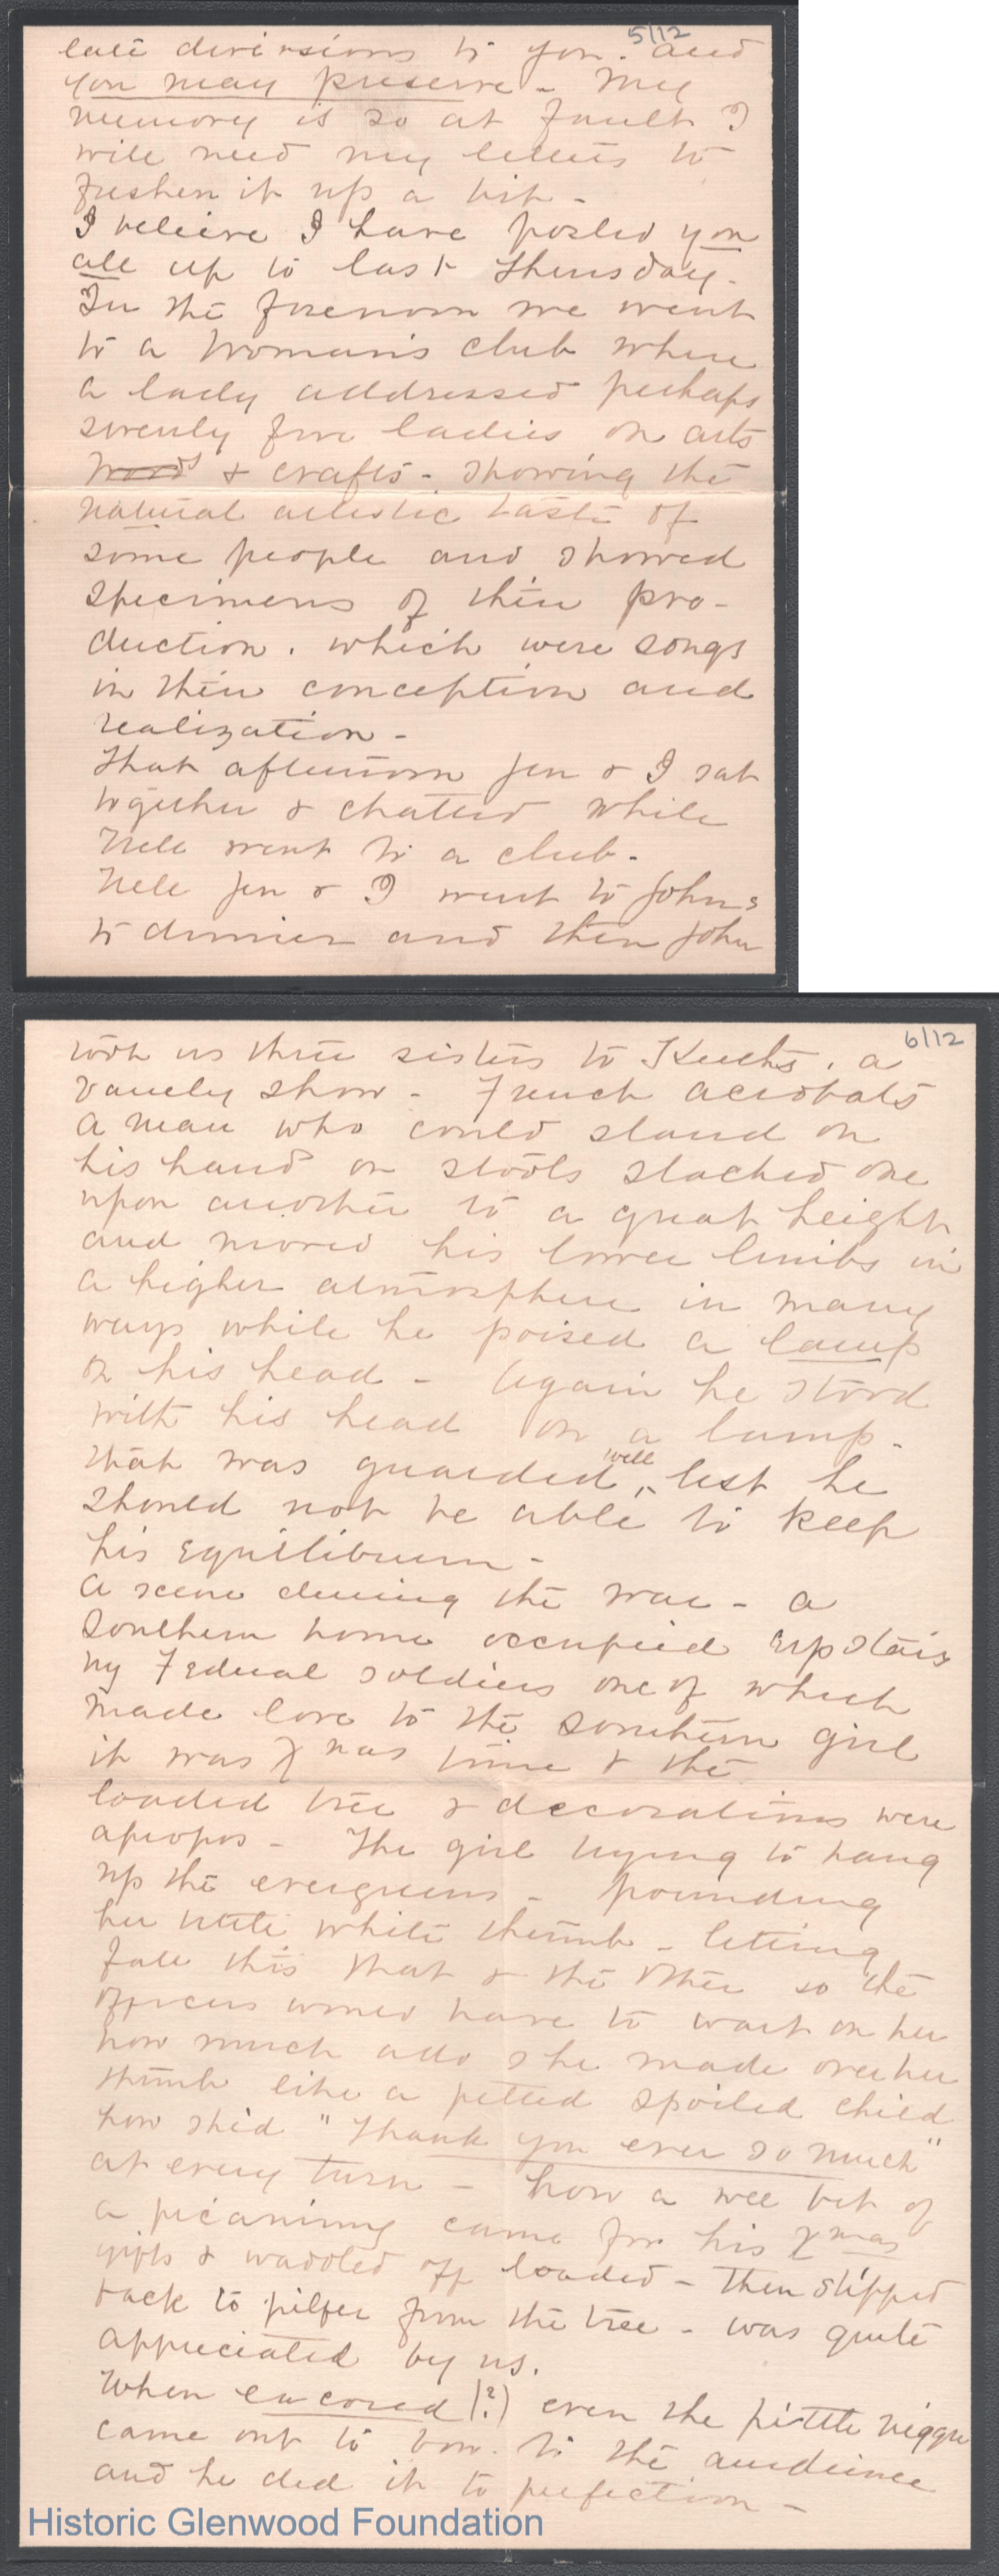 5/12
late diversions to you. and
you may preserve - My
memory is so at fault I
will need my letters to
freshen it up a bit -
I believe I have posted you
all up to last Thursday.
In the forenoon we went
to a Woman's club where
a lady addressed perhaps
seventy five ladies on arts
words & crafts - showing the
natural artistic taste of
some people and showed
specimens of their pro-
duction. which were songs
in their conception and
realization -
That afternoon Jen & I sat
together & chatted while
Nell went to a club -
Nell Jen & I went to Johns
to dinner and then John
6/12
took us three sisters to Keiths. a
variety show - French acrobats
a man who could stand on
his hand on stools stacked one
upon another to a great height
and moved his lower limbs in
a higher atmosphere in many
ways while he poised a lamp
on his head - Again he stood
with his head on a lamp -
that was guarded well, lest he
should not be able to keep
his Equilibrium -
A scene during the war - a
Southern home occupied upstairs
by Federal soldiers one of which
made love to the Southern girl
it was Xmas time & the
loaded tree & decorations were
apropos - The girl trying to hang
up the evergreens - pounding
her little white thumb - letting
fall this that & the other so the
officers would have to wait on her
how much ado she made over her
thumb like a petted spoiled child
how she'd "Thank you ever so much"
at every turn - how a wee bit of
a picaninny came for his Xmas
gifts & waddled off loaded - then slipped
back to pilfer from the tree - was quite
appreciated by us.
When encored (?) even the little nigger
came out to bow to the audience
and he did it to perfection -
Historic Glenwood Foundation